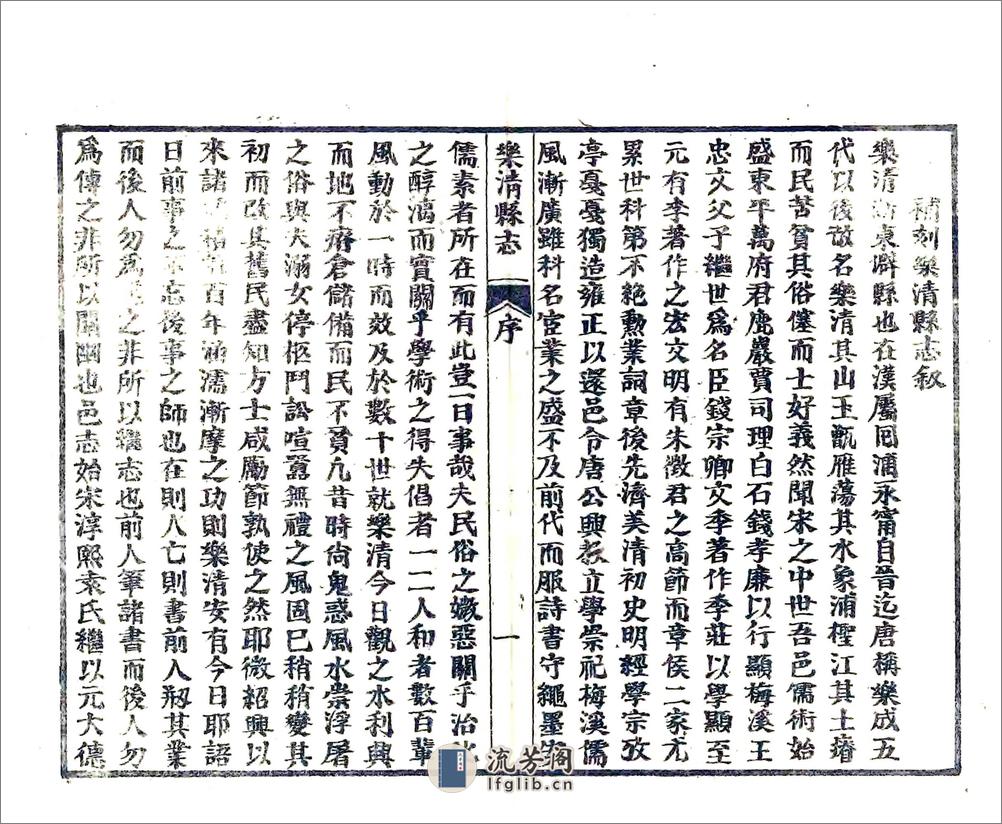 補刻樂清縣志敘
樂清浙東僻縣也在漢屬回浦永甯自晉迄唐稱樂成五
代以後改名樂清其山玉甑雁蕩其水象浦檉江其土瘠
而民苦貧其俗僿而士好義然聞宋之中世吾邑儒術始
盛東平萬府君鹿巖賈司理白石錢孝廉以行顯梅溪王
忠文父子繼世爲名臣錢宗卿文季著作季莊以學顯至
元有李著作之宏文明有朱徵君之高節而章侯二家尤
累世科第不絕勳業詞章後先濟美清初史明經學宗攷
亭戛戛獨造雍正以還邑令唐公興教立學崇祀梅溪儒
風漸廣雖科名宦業之盛不及前代而服詩書守繩墨
樂清縣志
序
一
儒素者所在而有此豈一日事哉夫民俗之媺惡關乎治
之醇漓而實關乎學術之得失倡者一二人和者數百輩
風動於一時而效及於數十世就樂清今日觀之水利興
而地不瘠倉儲備而民不貧凡昔時尚鬼惑風水崇浮屠
之俗與夫溺女停柩鬥訟喧囂無禮之風固已稍稍變其
初而改其舊民盡知方士咸勵節孰使之然耶微紹興以
來諸百年涵濡漸摩之功則樂清安有今日耶語
曰前事之不忘後事之師也在則人亡則書前人剏其業
而後人勿爲之非所以繼志也前人筆諸書而後人勿
爲傳之非所以闡幽也邑志始宋淳熙袁氏繼以元大德
流芳閣
lfglib.cn